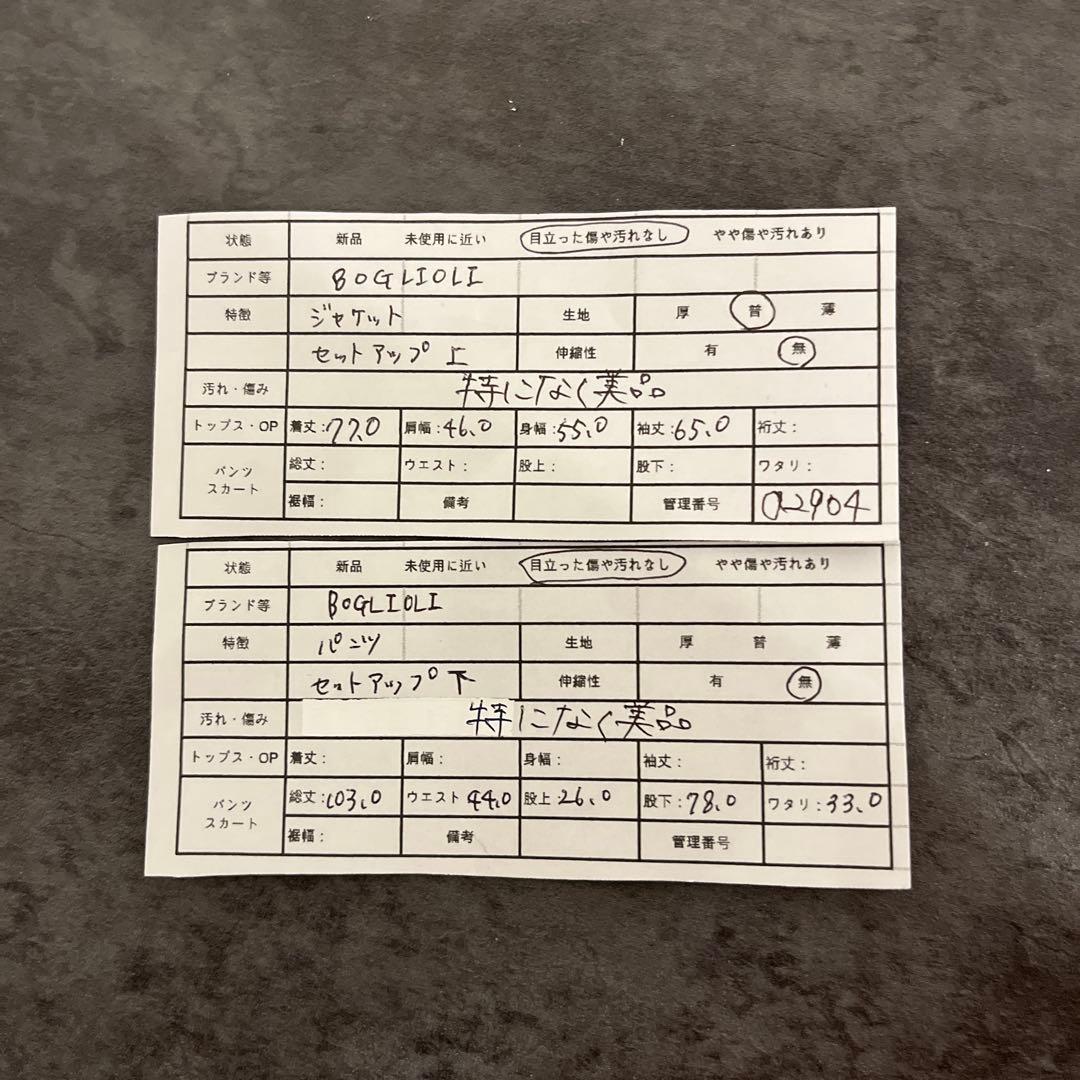 状態 新品 未使用に近い 目立った傷や汚れなし やや傷や汚れあり
ブランド等 BOGLIOLI
特徴 ジャケット 生地 厚 普 薄
セットアップ 上 伸縮性 有 無
汚れ・傷み 特になく美品
トップス・OP 着丈:77.0 肩幅:46.0 身幅:55.0 袖丈:65.0 裄丈:
パンツ スカート 総丈: ウエスト: 股上: 股下: ワタリ:
裾幅: 備考 管理番号 a2904
状態 新品 未使用に近い 目立った傷や汚れなし やや傷や汚れあり
ブランド等 BOGLIOLI
特徴 パンツ 生地 厚 普 薄
セットアップ 下 伸縮性 有 無
汚れ・傷み 特になく美品
トップス・OP 着丈: 肩幅: 身幅: 袖丈: 裄丈:
パンツ スカート 総丈:103.0 ウエスト 44.0 股上:26.0 股下:78.0 ワタリ:33.0
裾幅: 備考 管理番号